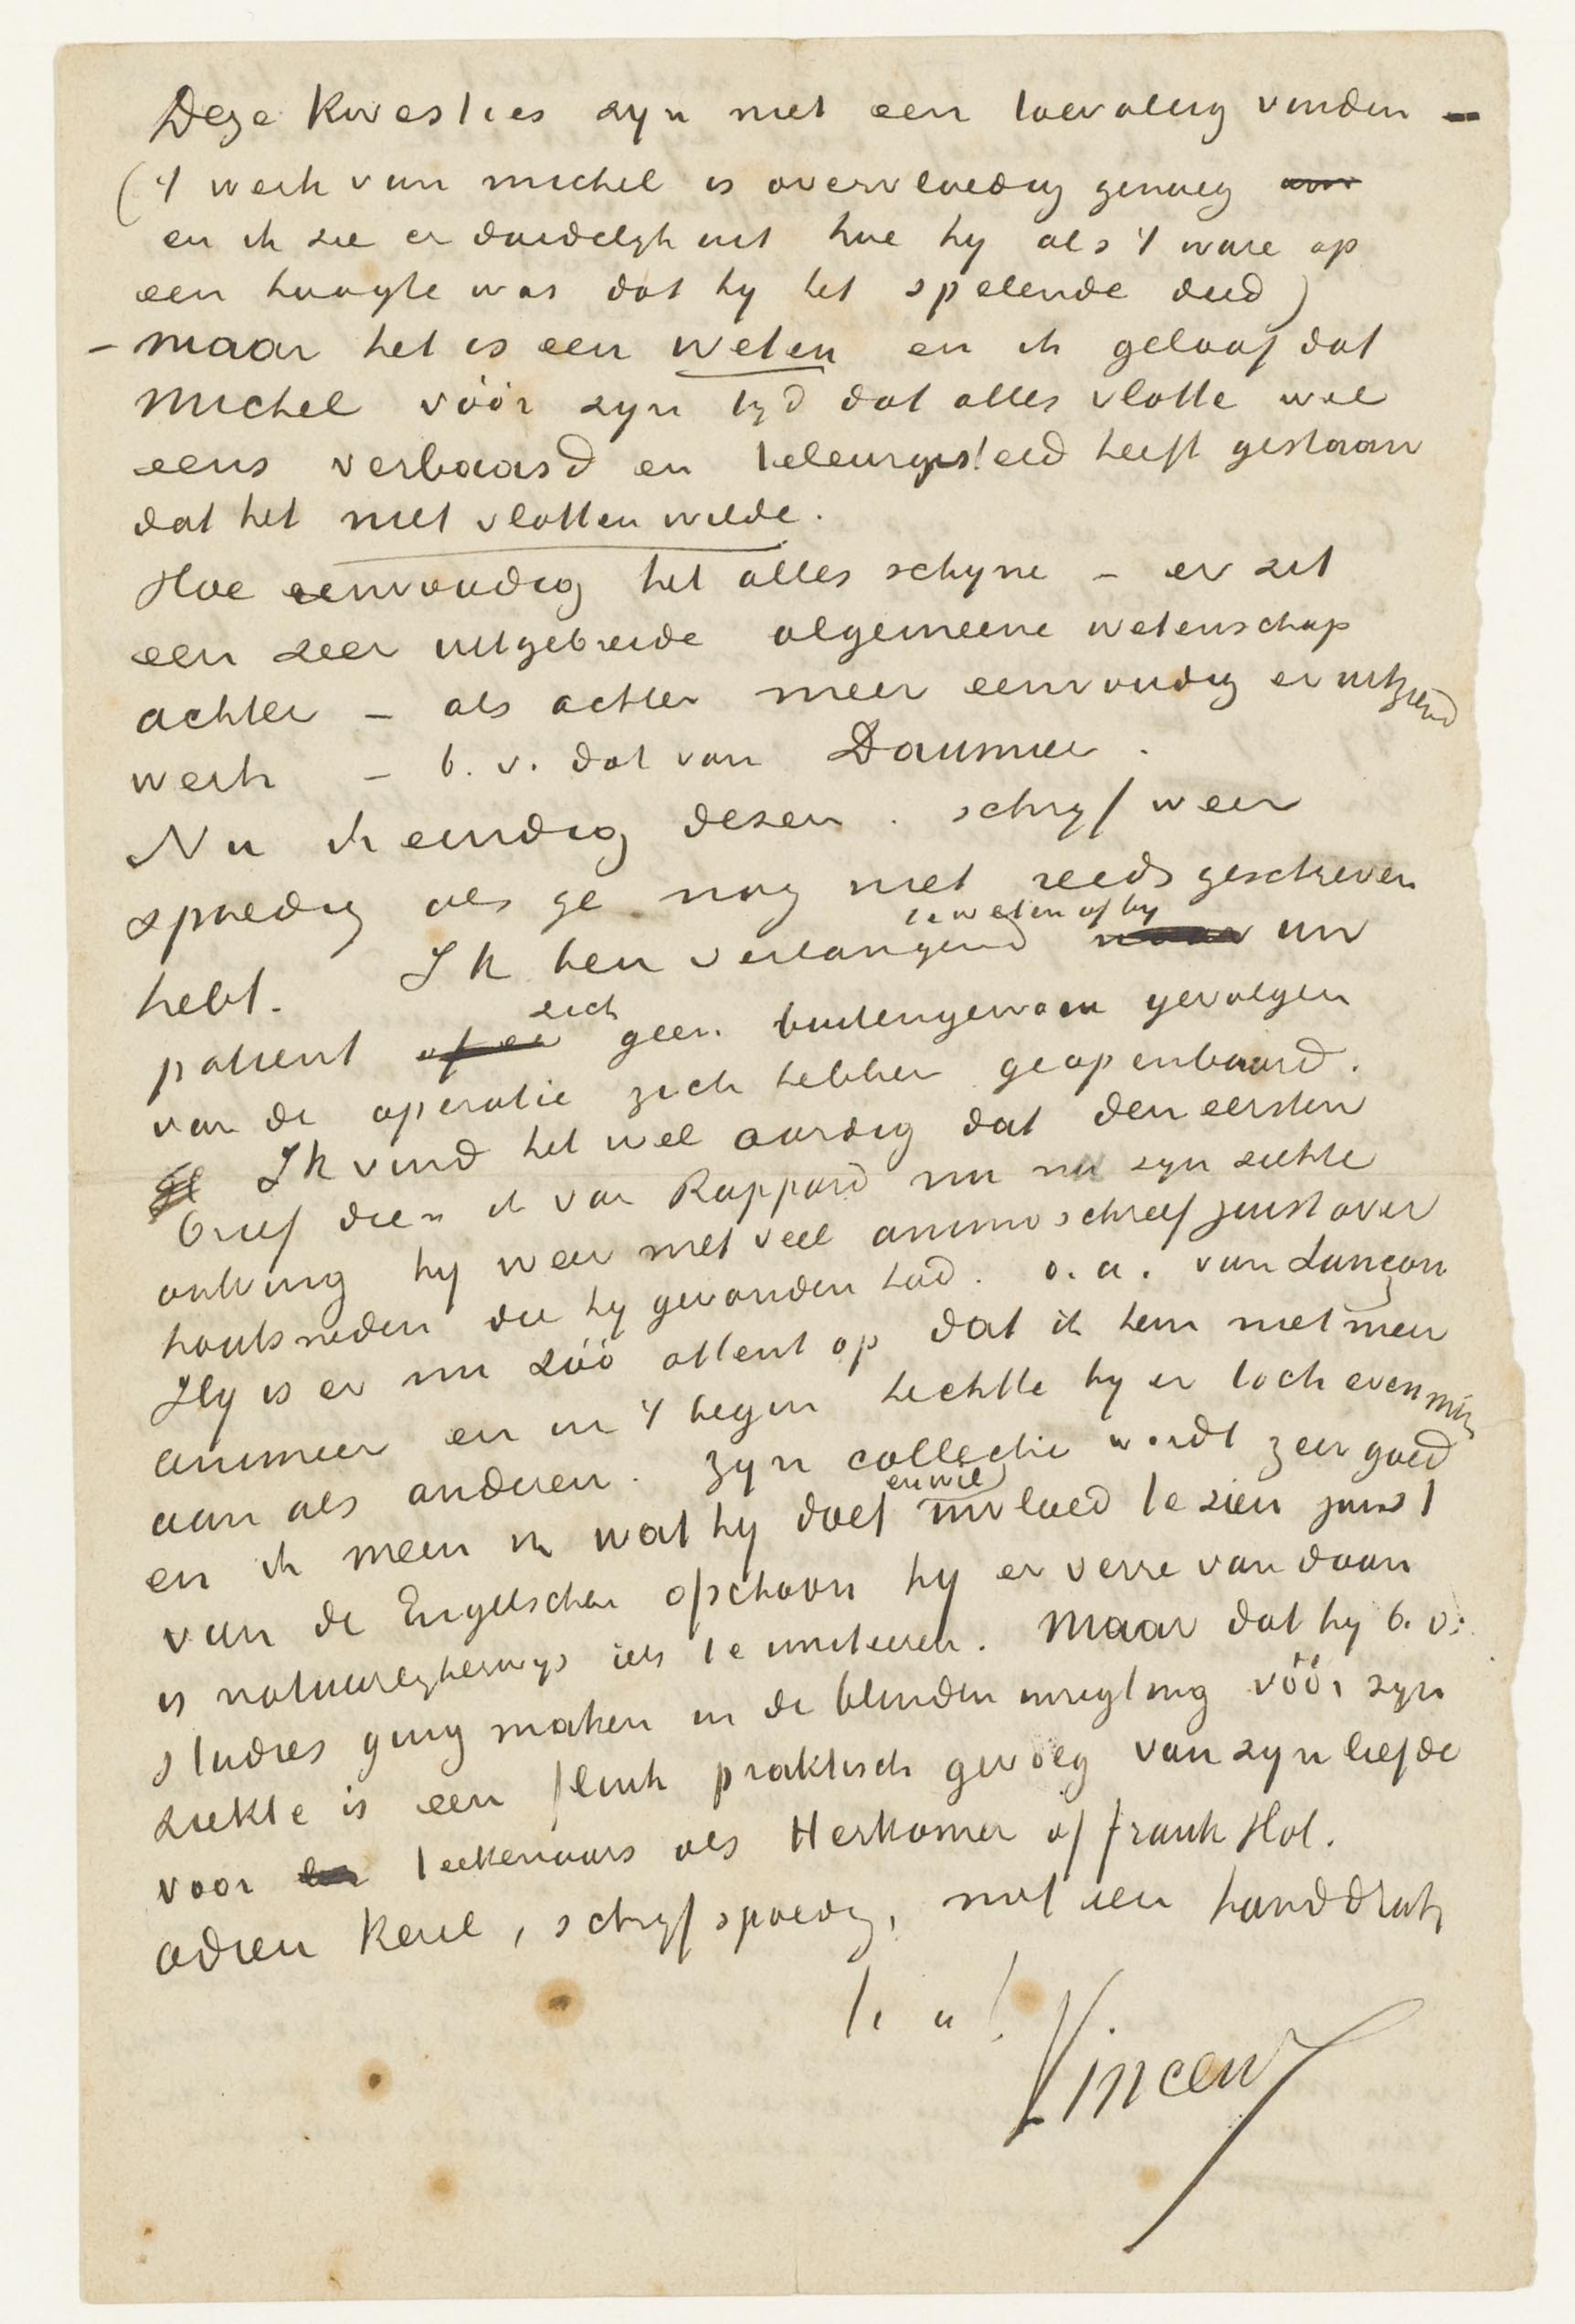 Deze kwesties zyn niet een toevallig vinden –
('t werk van Michel is overvloedig genoeg
en ik zie er duidelyk uit hoe hy als 't ware op
een hoogte was dat hy het spelende deed)
– maar het is een weten en ik geloof dat
Michel vóór zyn tyd dat alles vlotte wel
eens verbaasd en teleurgesteld heeft gestaan
dat het niet vlotten wilde.
Hoe eenvoudig het alles schyne – er zit
een zeer uitgebreide algemeene wetenschap
achter – als achter meer eenvoudig er uitziend
werk – b. v. dat van Daumier.
Nu ik eindig dezen. schryf weer
spoedig als ge nog niet reeds geschreven
hebt. Ik ben verlangend te weten of by uw
patient zich geen buitengewone gevolgen
van de operatie zich hebben geopenbaard.
Ik vind het wel aardig dat den eersten
brief dien ik van Rappard nu na zyn ziekte
ontving hy weer met veel animo schreef juist over
houtsneden die hy gevonden had. o. a. van Lançon
Hy is er nu zóó attent op dat ik hem niet meer
animeer en in 't begin hechtte hy er toch evenmin
aan als anderen. Zyn collectie wordt zeer goed
en ik meen in wat hy doet en wil invloed te zien juist
van de Engelschen ofschoon hy er verre van daan
is natuurlykerwys iets te imiteeren. Maar dat hy b. v.
studies ging maken in de blindeninrigting vóór zyn
ziekte is een flink praktisch gevolg van zyn liefde
voor teekenaars als Herkomer of Frank Hol.
adieu Kerel, schryf spoedig, met een handdruk
t. à t.
Vincent